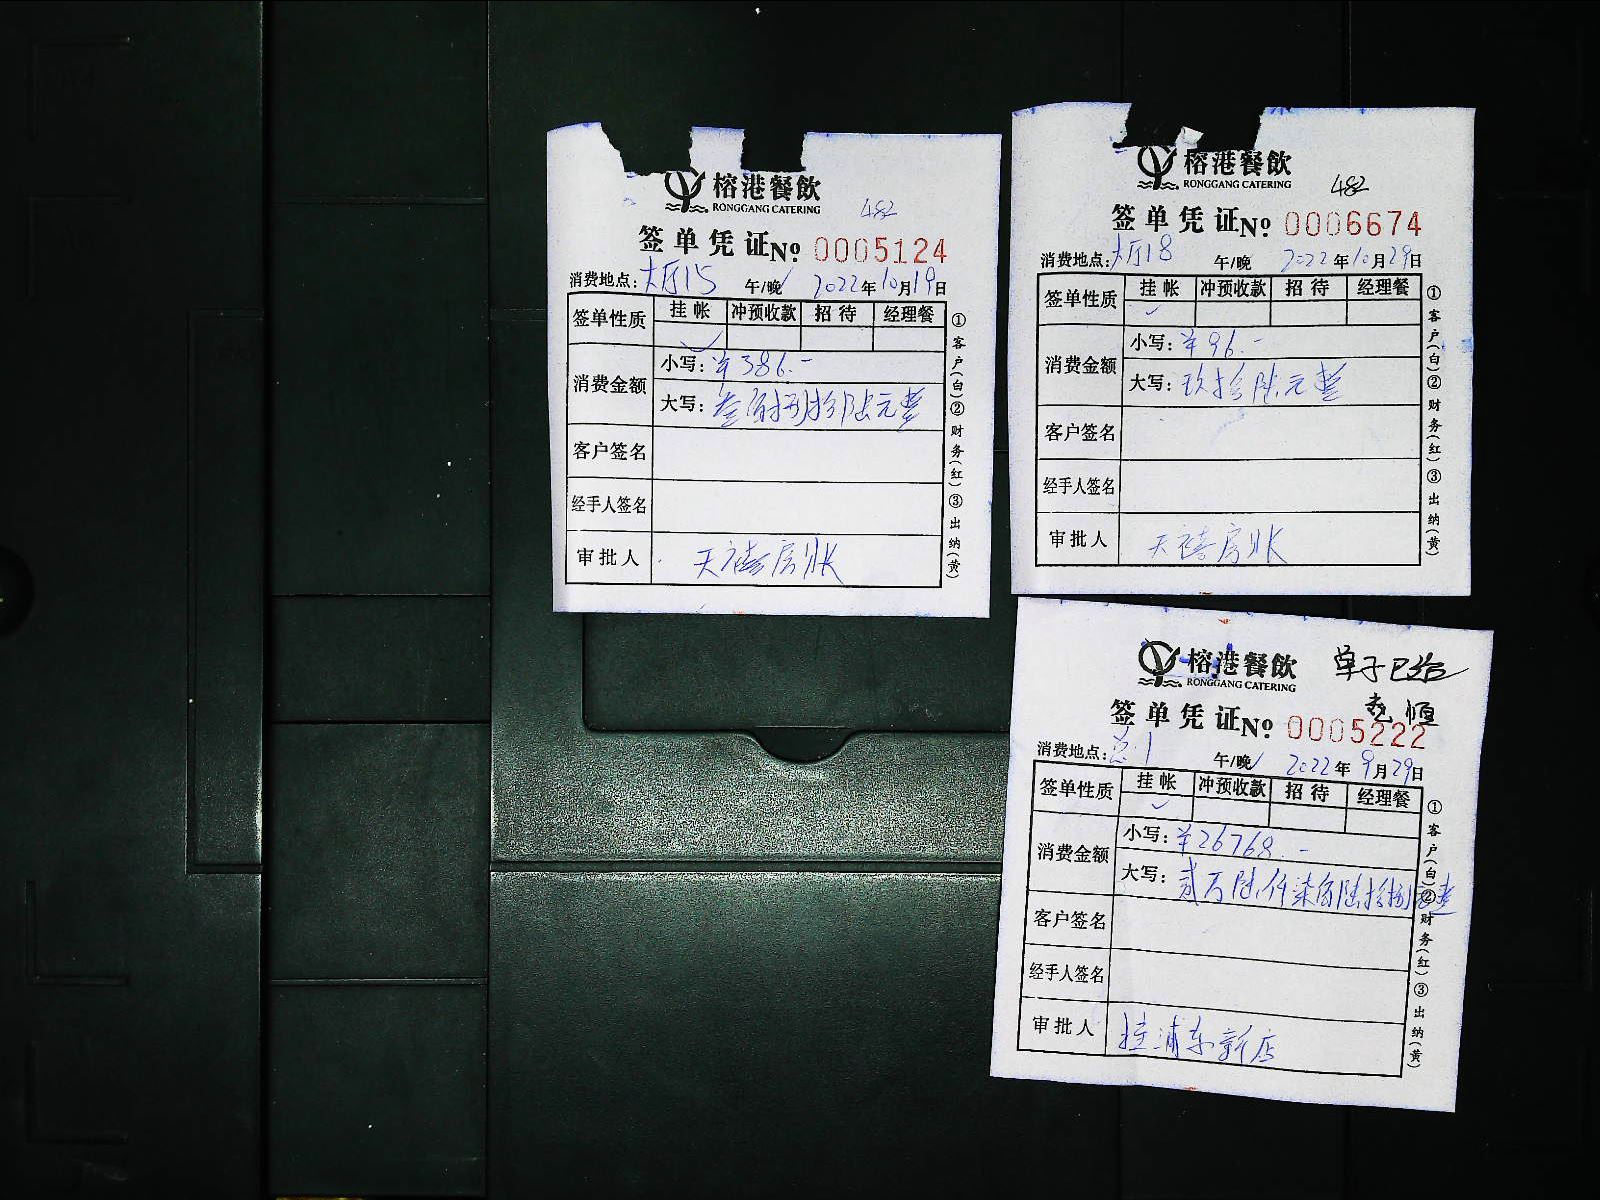 榕港餐飲
RONGGANG CATERING
482
签单凭证 No: 0005124
消费地点: 大厅15 午/晚 2022年10月19日
签单性质 挂帐 冲预收款 招待 经理餐
消费金额 小写: ¥386.-
大写: 叁佰捌拾陆元整
客户签名
经手人签名
审批人 天禧房账
①客户(白)②财务(红)③出纳(黄)
榕港餐飲
RONGGANG CATERING
482
签单凭证 No: 0006674
消费地点: 大厅18 午/晚 2022年10月29日
签单性质 挂帐 冲预收款 招待 经理餐
消费金额 小写: ¥96.-
大写: 玖拾陆元整
客户签名
经手人签名
审批人 天禧房账
①客户(白)②财务(红)③出纳(黄)
榕港餐飲
RONGGANG CATERING
单子已给
恒
签单凭证 No: 0005222
消费地点: 1 午/晚 2022年9月29日
签单性质 挂帐 冲预收款 招待 经理餐
消费金额 小写: ¥26768.-
大写: 贰万陆仟柒佰陆拾捌元整
客户签名
经手人签名
审批人 挂浦东新店
①客户(白)②财务(红)③出纳(黄)